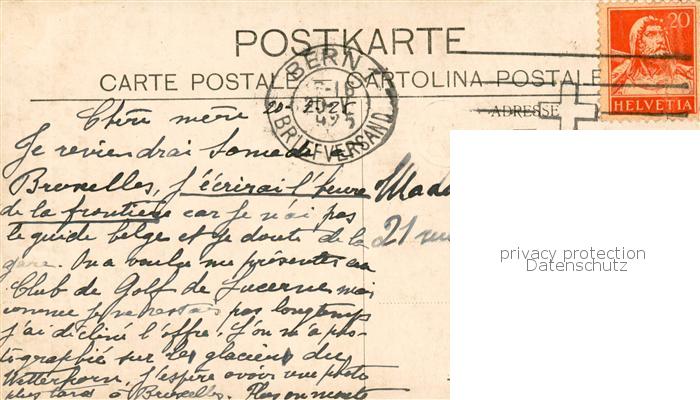 POSTKARTE
CARTE POSTALE CARTOLINA POSTALE
BERN 1
BRIEFVERSAND
20
HELVETIA
ADRESSE
Chère mère
Je reviendrai Samedi à
Bruxelles, j'écrirai l'heure
de la frontière car je n'ai pas
le guide belge et je doute de la
gare. On a voulu me présenter au
Club de Golf de Lucerne mais
comme je ne restais pas longtemps
j'ai décliné l'offre. L'on m'a pho-
tographié sur les glaciers du
Wetterhorn, j'espère avoir une photo
plus tard à Bruxelles. Plus on monte
Mada
21
privacy protection
Datenschutz